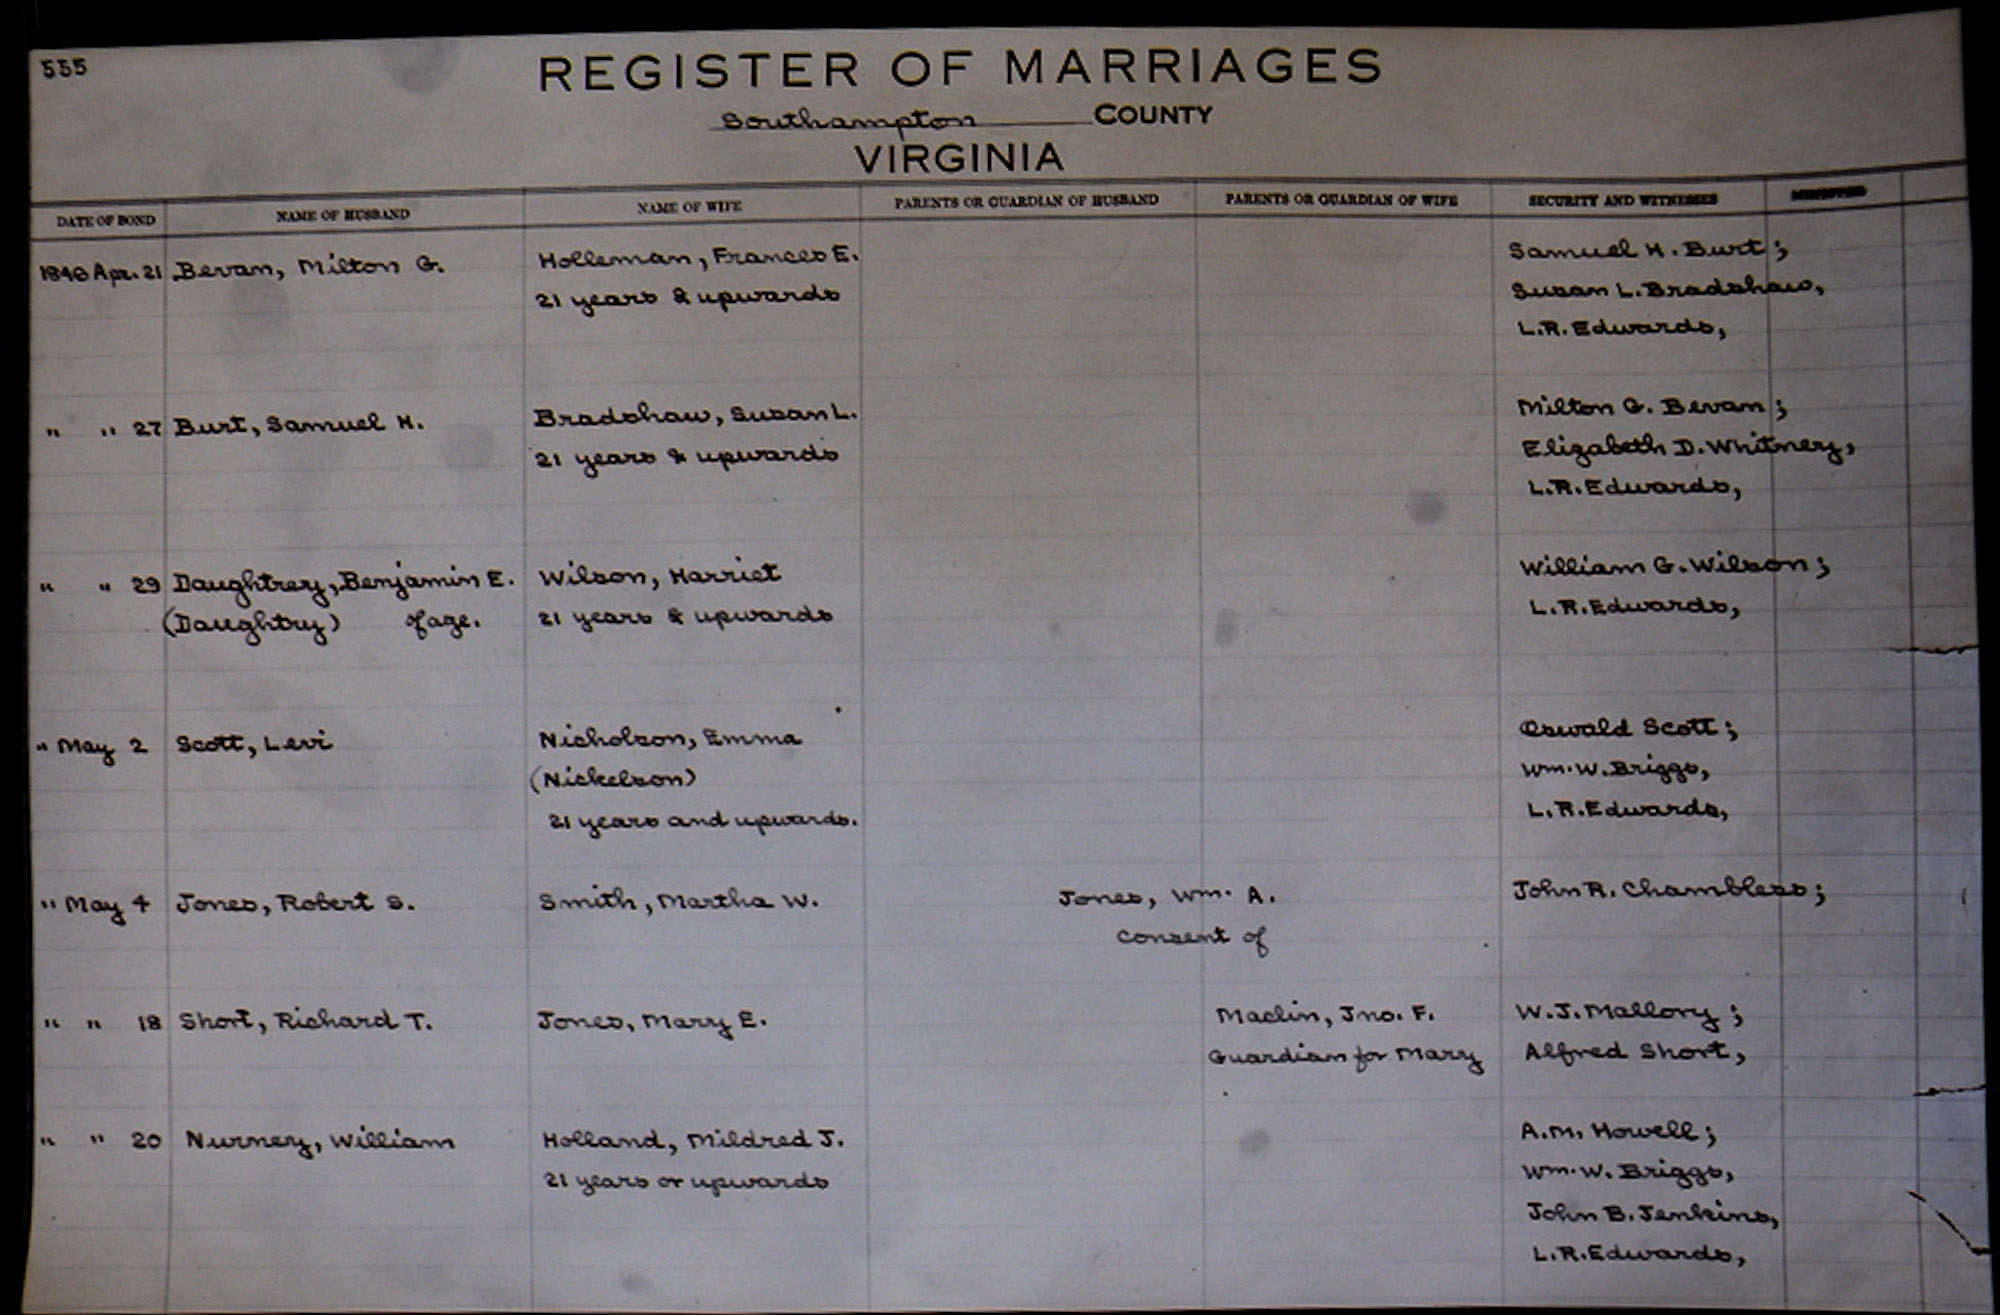 555
REGISTER OF MARRIAGES
Southampton COUNTY
VIRGINIA
DATE OF BOND NAME OF HUSBAND NAME OF WIFE PARENTS OR GUARDIAN OF HUSBAND PARENTS OR GUARDIAN OF WIFE SECURITY AND WITNESSES
1848 Apr. 21 Bevan, Milton G. Holleman, Frances E. Samuel H. Burt;
21 years & upwards Susan L. Bradshaw,
L.R. Edwards,
" " 27 Burt, Samuel H. Bradshaw, Susan L. Milton G. Bevan;
21 years & upwards Elizabeth D. Whitney,
L.R. Edwards,
" " 29 Daughtrey, Benjamin E. Wilson, Harriet William G. Wilson;
(Daughtry) of age. 21 years & upwards L.R. Edwards,
" May 2 Scott, Levi Nicholson, Emma Oswald Scott;
(Nickelson) Wm. W. Briggs,
21 years and upwards. L.R. Edwards,
" May 4 Jones, Robert S. Smith, Martha W. Jones, Wm. A. John R. Chambless;
Consent of
" " 18 Short, Richard T. Jones, Mary E. Maclin, Jno. F. W.J. Mallory;
Guardian for Mary Alfred Short,
" " 20 Nurney, William Holland, Mildred J. A.M. Howell;
21 years or upwards Wm. W. Briggs,
John B. Jenkins,
L.R. Edwards,